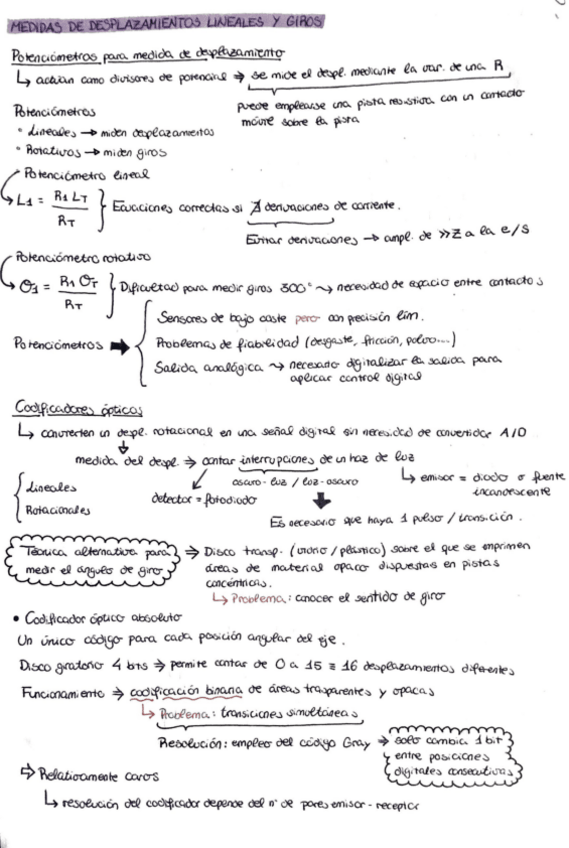 MEDIDAS DE DESPLAZAMIENTOS LINEALES Y GIROS
Potenciómetros para medida de desplazamiento
↳ actúan como divisores de potencial ⇒ se mide el despl. mediante la var. de una R
puede emplearse una pista resistiva con un contacto
móvil sobre la pista
Potenciómetros
• Lineales → miden desplazamientos
• Rotativos → miden giros
Potenciómetro lineal
L1 = R1 LT / RT } Ecuaciones correctas si ∄ derivaciones de corriente.
Evitar derivaciones → ampl. de »Z a la e/s
Potenciómetro rotativo
θ1 = R1 θT / RT } Dificultad para medir giros 300° ⇝ necesidad de espacio entre contactos
Potenciómetros ➡
Sensores de bajo coste pero con precisión lim.
Problemas de fiabilidad (desgaste, fricción, polvo...)
Salida analógica ⇝ necesario digitalizar la salida para
aplicar control digital
Codificadores ópticos
↳ convierten un despl. rotacional en una señal digital sin necesidad de convertidor A/D
medida del despl. ⇒ contar interrupciones de un haz de luz
oscuro-luz / luz-oscuro
↳ emisor = diodo o fuente
incandescente
{ Lineales
Rotacionales
detector = fotodiodo
Es necesario que haya 1 pulso / transición.
Técnica alternativa para
medir el ángulo de giro
⇒ Disco transp. (vidrio / plástico) sobre el que se imprimen
áreas de material opaco dispuestas en pistas
concéntricas.
↳ Problema: conocer el sentido de giro
• Codificador óptico absoluto
Un único código para cada posición angular del eje.
Disco giratorio 4 bits ⇒ permite contar de 0 a 15 ≡ 16 desplazamientos diferentes
Funcionamiento ⇒ codificación binaria de áreas trasparentes y opacas
↳ Problema: transiciones simultáneas
Resolución: empleo del código Gray ⇒ solo cambia 1 bit
entre posiciones
digitales consecutivas
⇨ Relativamente caros
↳ resolución del codificador depende del nº de pares emisor-receptor